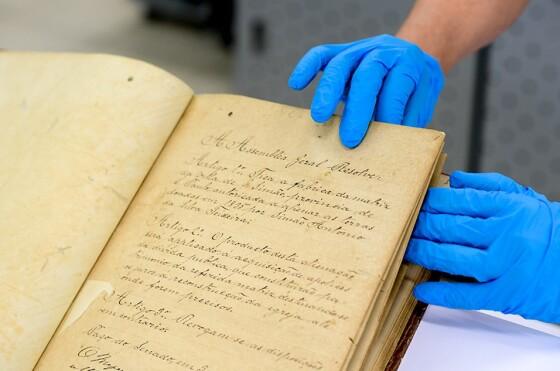 A Assemblea Geral Resolve:
Artigo 1º. Fica a fabrica da matriz
da Villa de S. Simão, provincia de
S. Paulo autorizada a alienar as terras
doadas em 1835 por Simão Antonio
da Silva Teixeira.
Artigo 2º. O producto desta alienação
será applicado a acquisição de apolices
da divida publica que constituirão pa
trimonio da referida matriz destinando-se
para a reconstrucção da igreja até
onde forem precisos.
Artigo 3º. Revogam-se as disposições
em contrario.
Paço do Senado, em 2